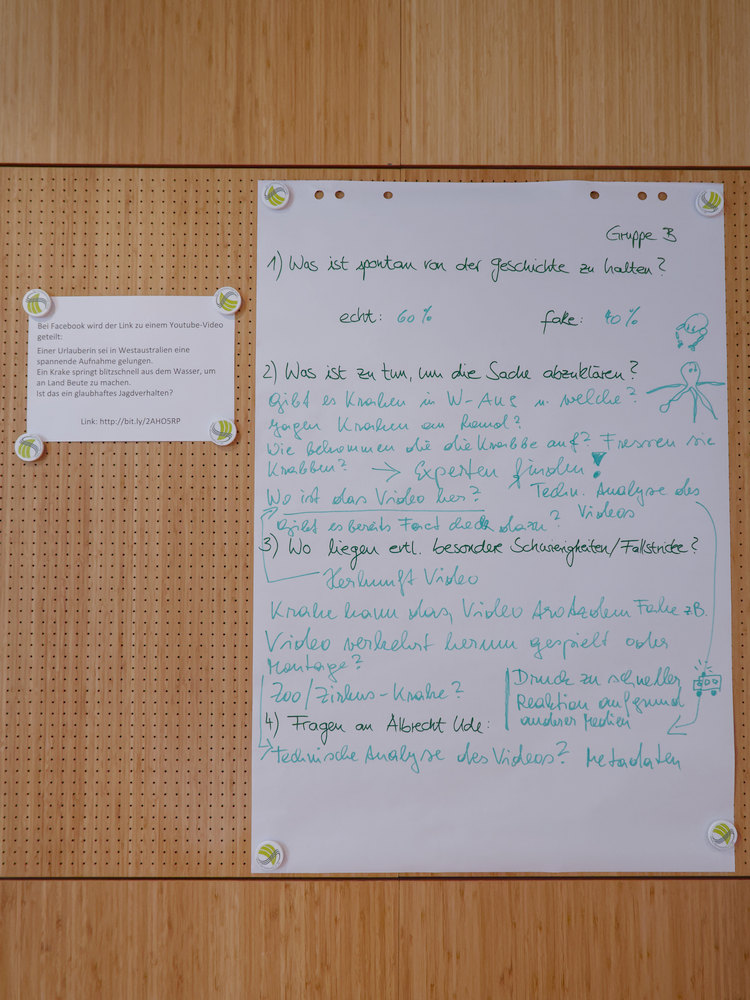 Bei Facebook wird der Link zu einem Youtube-Video
geteilt:
Einer Urlauberin sei in Westaustralien eine
spannende Aufnahme gelungen.
Ein Krake springt blitzschnell aus dem Wasser, um
an Land Beute zu machen.
Ist das ein glaubhaftes Jagdverhalten?
Link: http://bit.ly/2AHO5RP
Gruppe B
1) Was ist spontan von der Geschichte zu halten?
echt: 60% fake: 40%
2) Was ist zu tun, um die Sache abzuklären?
Gibt es Kraken in W-AUS u. welche?
Jagen Kraken an Land?
Wie bekommen die die Krabbe auf? Fressen sie
Krabben? → Experten finden!
Wo ist das Video her? Techn. Analyse des
Videos
Gibt es bereits Fact check dazu?
3) Wo liegen evtl. besondere Schwierigkeiten/Fallstricke?
Herkunft Video
Krake kann das, Video trotzdem Fake z.B.
Video verkehrt herum gespielt oder
Montage?
Zoo/Zirkus-Krake?
Druck zu schneller
Reaktion aufgrund
anderer Medien
4) Fragen an Albrecht Ude:
Technische Analyse des Videos? Metadaten